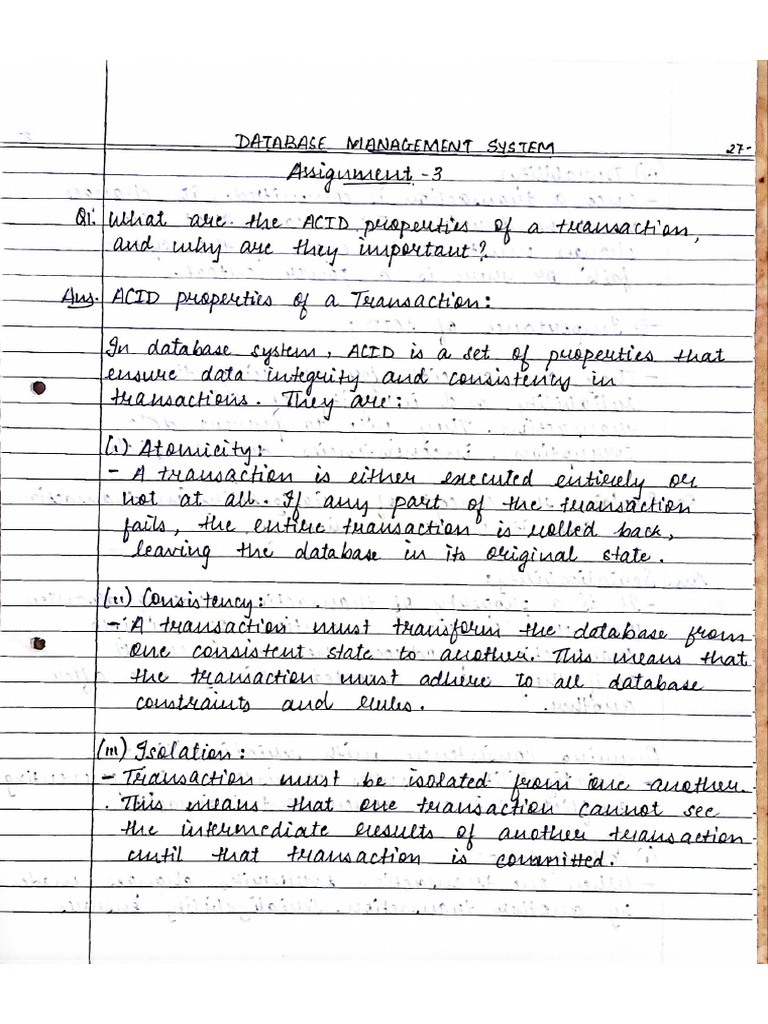 DATABASE MANAGEMENT SYSTEM 27-
Assignment-3
Q1. What are the ACID properties of a transaction,
and why are they important?
Ans. ACID properties of a Transaction:
In database system, ACID is a set of properties that
ensure data integrity and consistency in
transactions. They are:
(i) Atomicity:
- A transaction is either executed entirely or
not at all. If any part of the transaction
fails, the entire transaction is rolled back,
leaving the database in its original state.
(ii) Consistency:
- A transaction must transform the database from
one consistent state to another. This means that
the transaction must adhere to all database
constraints and rules.
(iii) Isolation:
- Transaction must be isolated from one another.
This means that one transaction cannot see
the intermediate results of another transaction
until that transaction is committed.